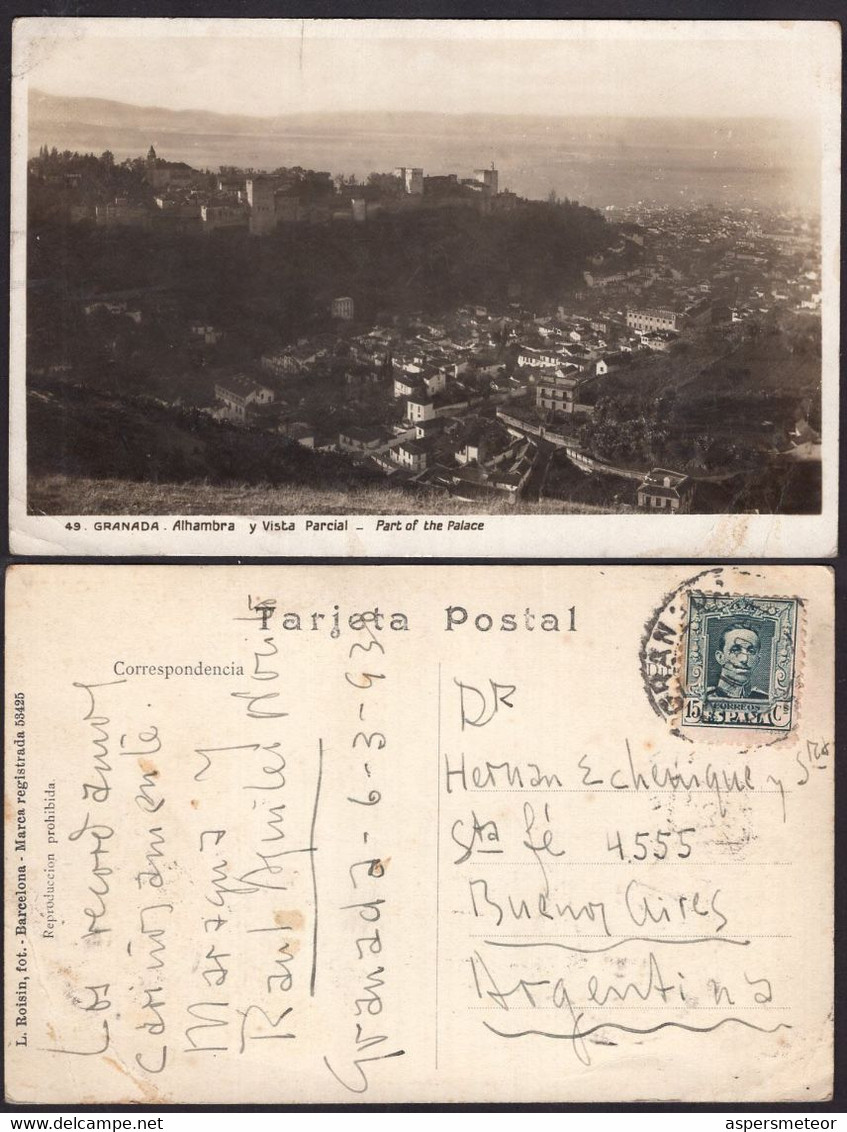 49. GRANADA. Alhambra y Vista Parcial - Part of the Palace
Tarjeta Postal
Correspondencia
L. Roisin, fot. - Barcelona - Marca registrada 53425
Reproduccion prohibida.
Los recordamos
cariñosamente.
Maragua y
Raul Aguiles
Granada-6-3-93
GRAN
CORREOS
15 Cs
ESPAÑA
Dr
Hernan Echenique y Sra
Sta fé 4555
Buenos Aires
Argentina
delcampe.net
aspersmeteor